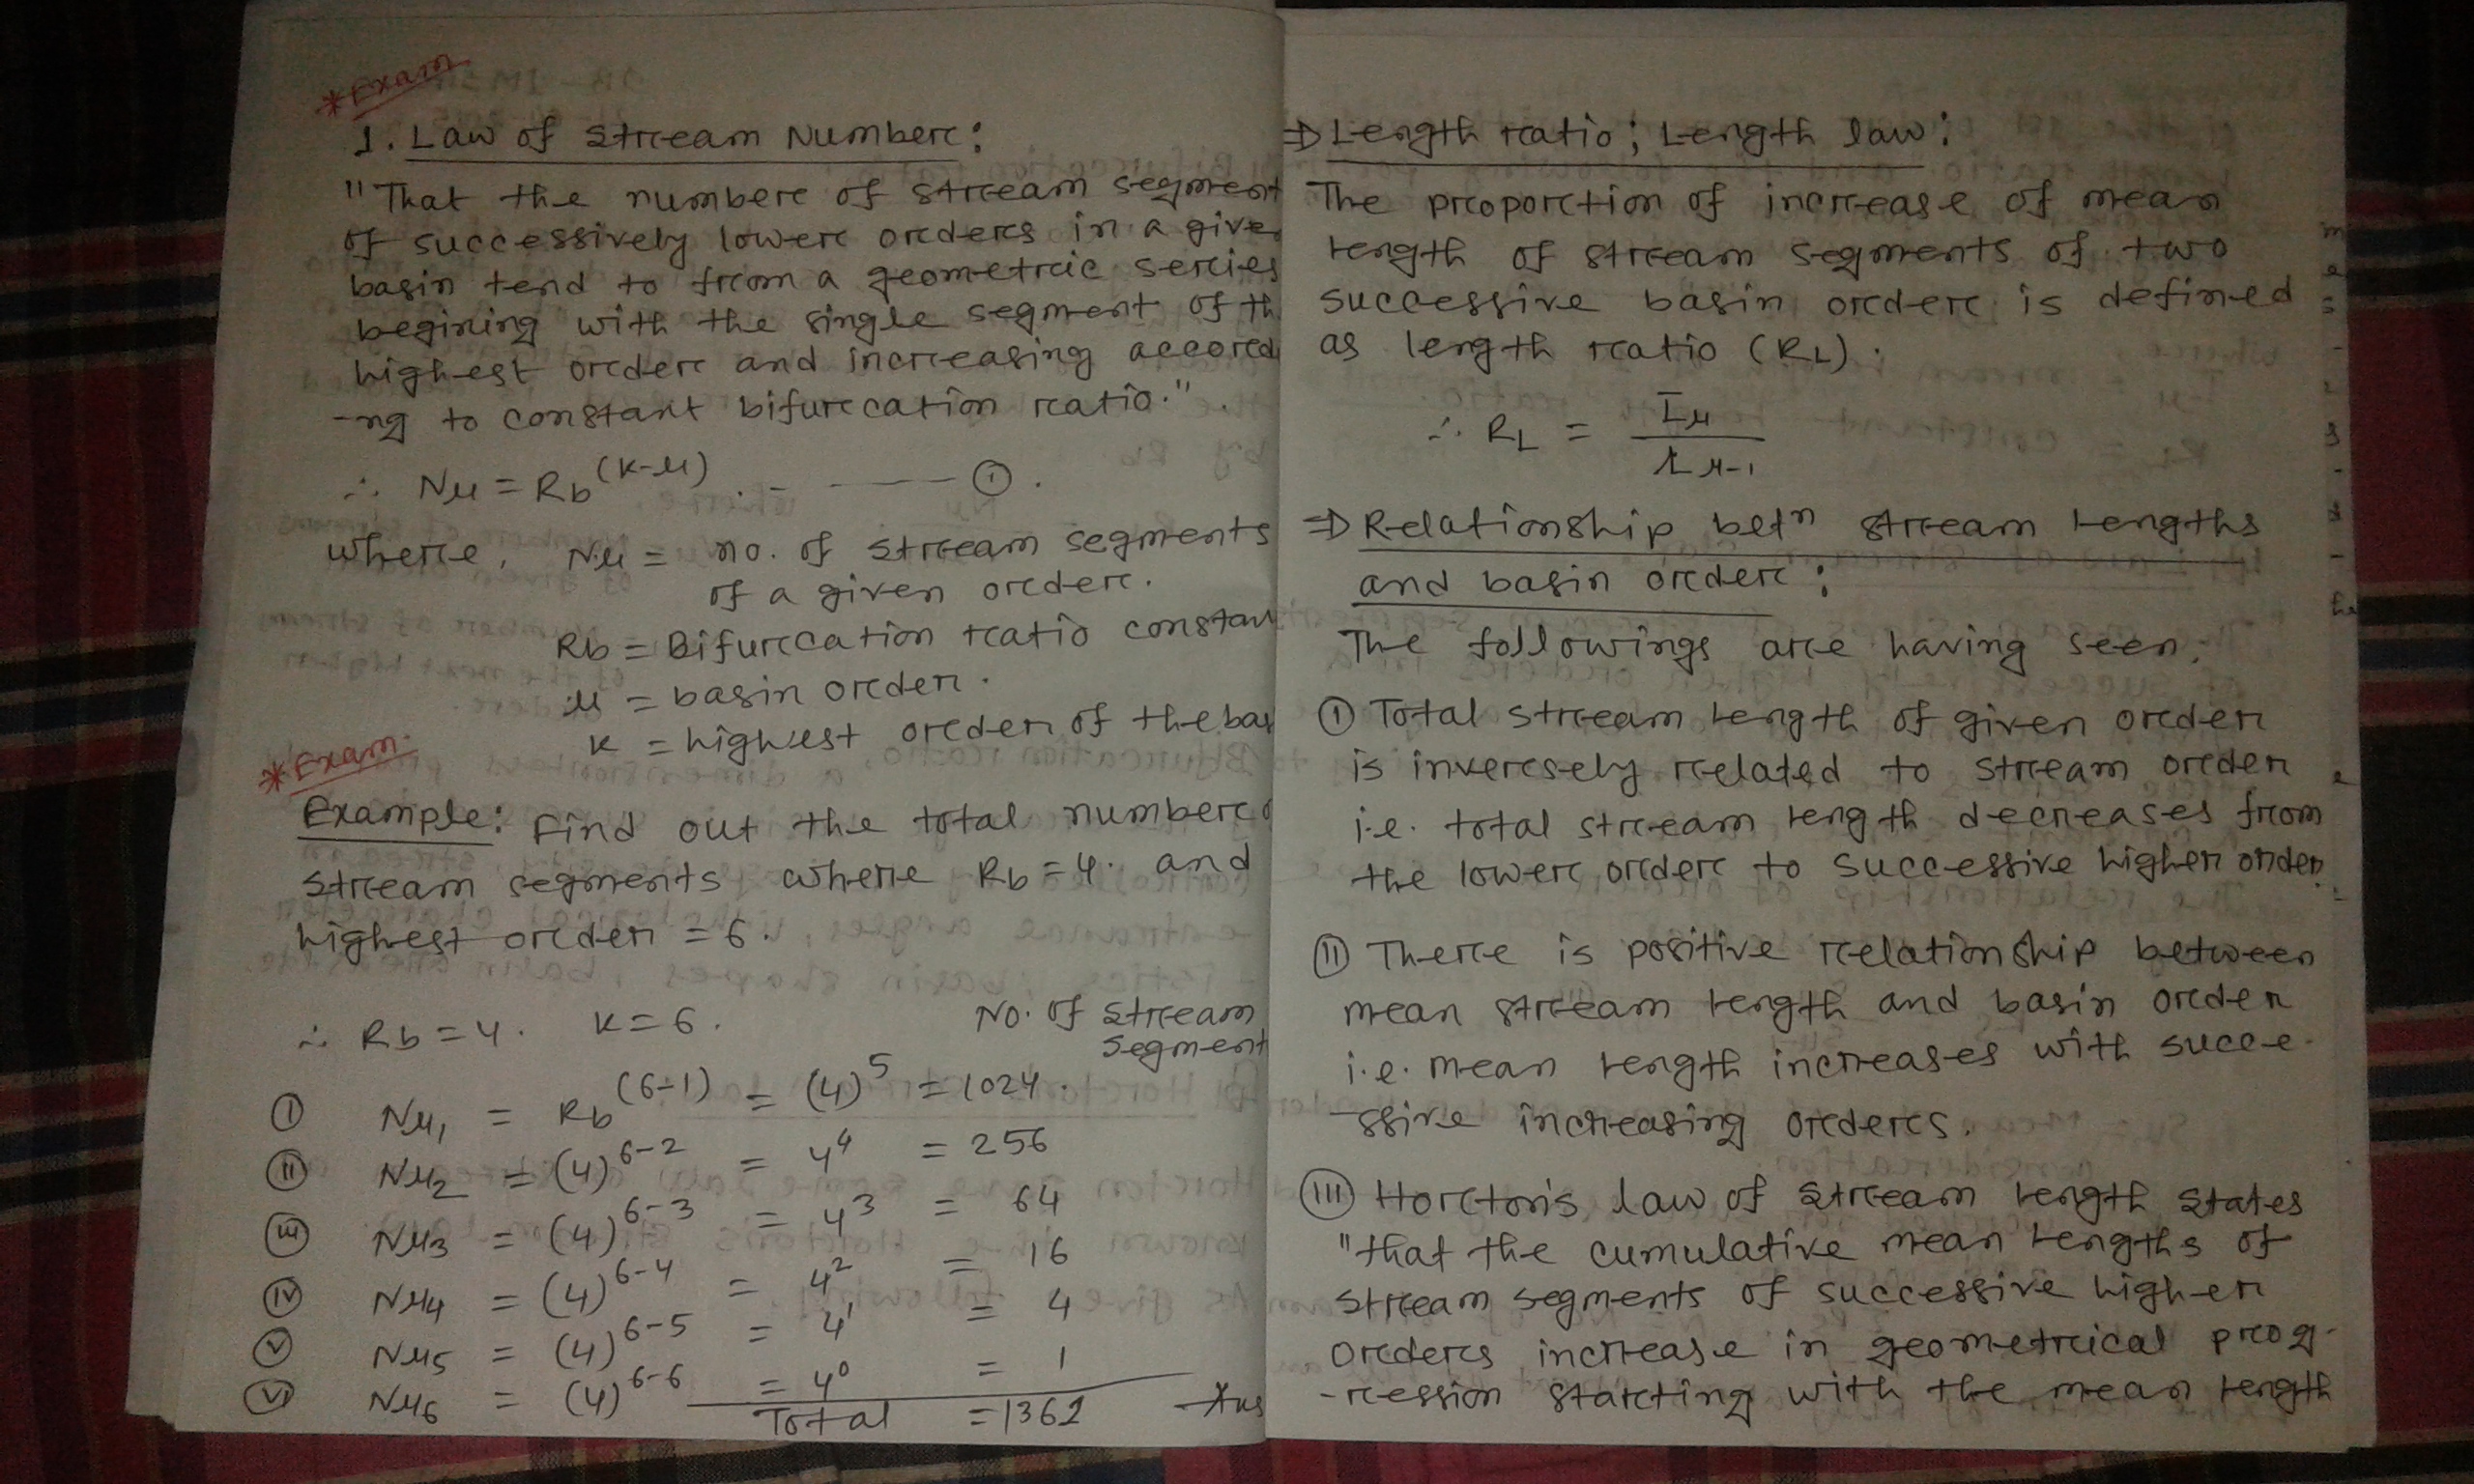 *Exam
1. Law of Stream Number:
"That the number of stream segment
of successively lower orders in a give
basin tend to from a geometric series
begining with the single segment of th
highest order and increasing accord
-ng to constant bifurcation ratio."
∴ Nμ = Rb^(K-μ) . - —— ①.
where, Nμ = no. of stream segments
of a given order.
Rb = Bifurcation ratio constan
μ = basin order.
K = highest order of the bas
*Exam
Example: Find out the total number o
stream segments where Rb = 4. and
highest order = 6.
∴ Rb = 4. K = 6. No. of stream
segment
(i) Nμ1 = Rb^(6-1) = (4)^5 = 1024.
(ii) Nμ2 = (4)^6-2 = 4^4 = 256
(iii) Nμ3 = (4)^6-3 = 4^3 = 64
(iv) Nμ4 = (4)^6-4 = 4^2 = 16
(v) Nμ5 = (4)^6-5 = 4^1 = 4
(vi) Nμ6 = (4)^6-6 = 4^0 = 1
Total = 1362 Ans
⇒ Length ratio; Length law:
The proportion of increase of mean
length of stream segments of two
successive basin order is defined
as length ratio (RL).
∴ RL = L̄μ / Lμ-1
⇒ Relationship betn stream lengths
and basin order:
The followings are having seen.
(i) Total stream length of given order
is inversely related to stream order
i.e. total stream length decreases from
the lower order to successive higher order.
(ii) There is positive relationship between
mean stream length and basin order
i.e. mean length increases with succe-
-ssive increasing orders.
(iii) Horton's law of stream length states
"that the cumulative mean lengths of
stream segments of successive higher
orders increase in geometrical prog-
-ression starting with the mean length